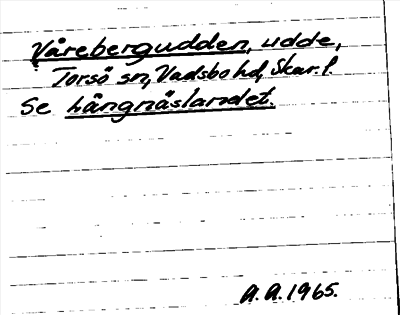 Vårebergudden, udde,
Torsö sn, Vadsbo hd, Skar. l.
Se Långnäslandet.
A. A. 1965.